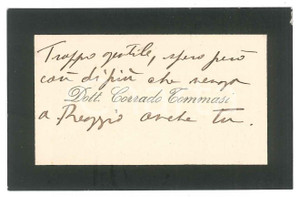 Troppo gentile, spero però
con di più che venga
Dott. Corrado Tommasi
a Reggio anche tu.